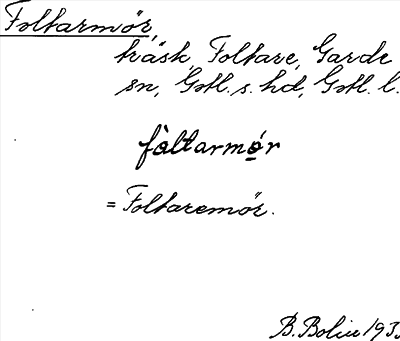 Foltarmör,
träsk, Foltare, Garde
sn, Gotl. s. hd, Gotl. l.
fòltarmǿr
= Foltaremör.
B. Bolin 193